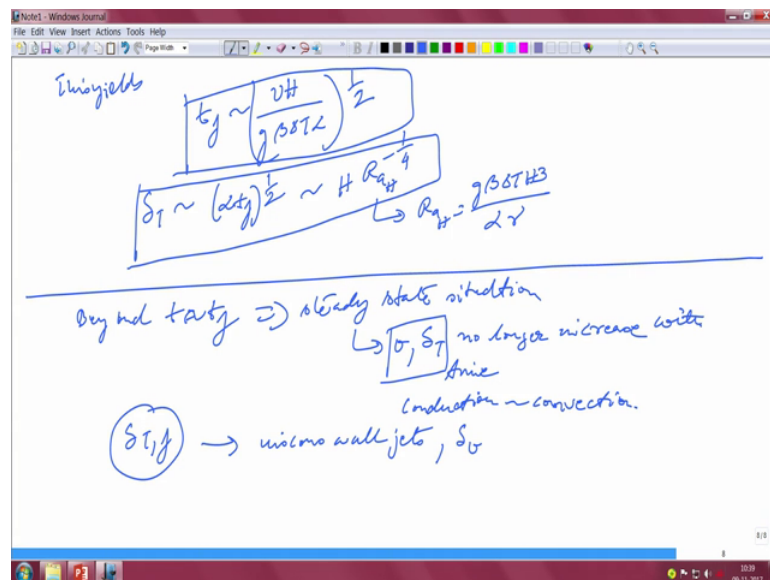 Note1 - Windows Journal
File Edit View Insert Actions Tools Help
Page Width
This yields
t_f ~ (νH / gβΔTα)^{1/2}
δ_T ~ (αt_f)^{1/2} ~ H Ra_H^{-1/4}
↳ Ra_H = gβΔTH3 / αν
Beyond t~t_f ⇒ steady state situation
↳ v, δ_T no longer increase with
time
conduction ~ convection.
δ_{T,f} → viscous wall jets, δ_v
8/8
8
10:39